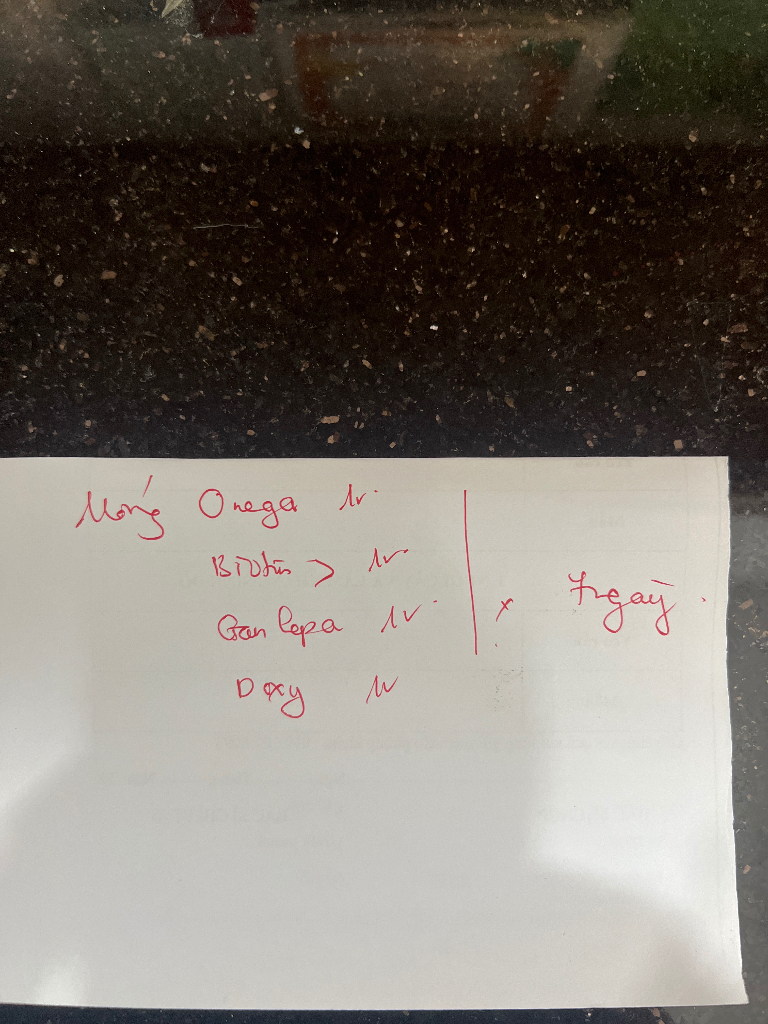 Omega 1v.
Biotin > 1v.
Gan lepa 1v.
Doxy 1v
x 7 ngày.